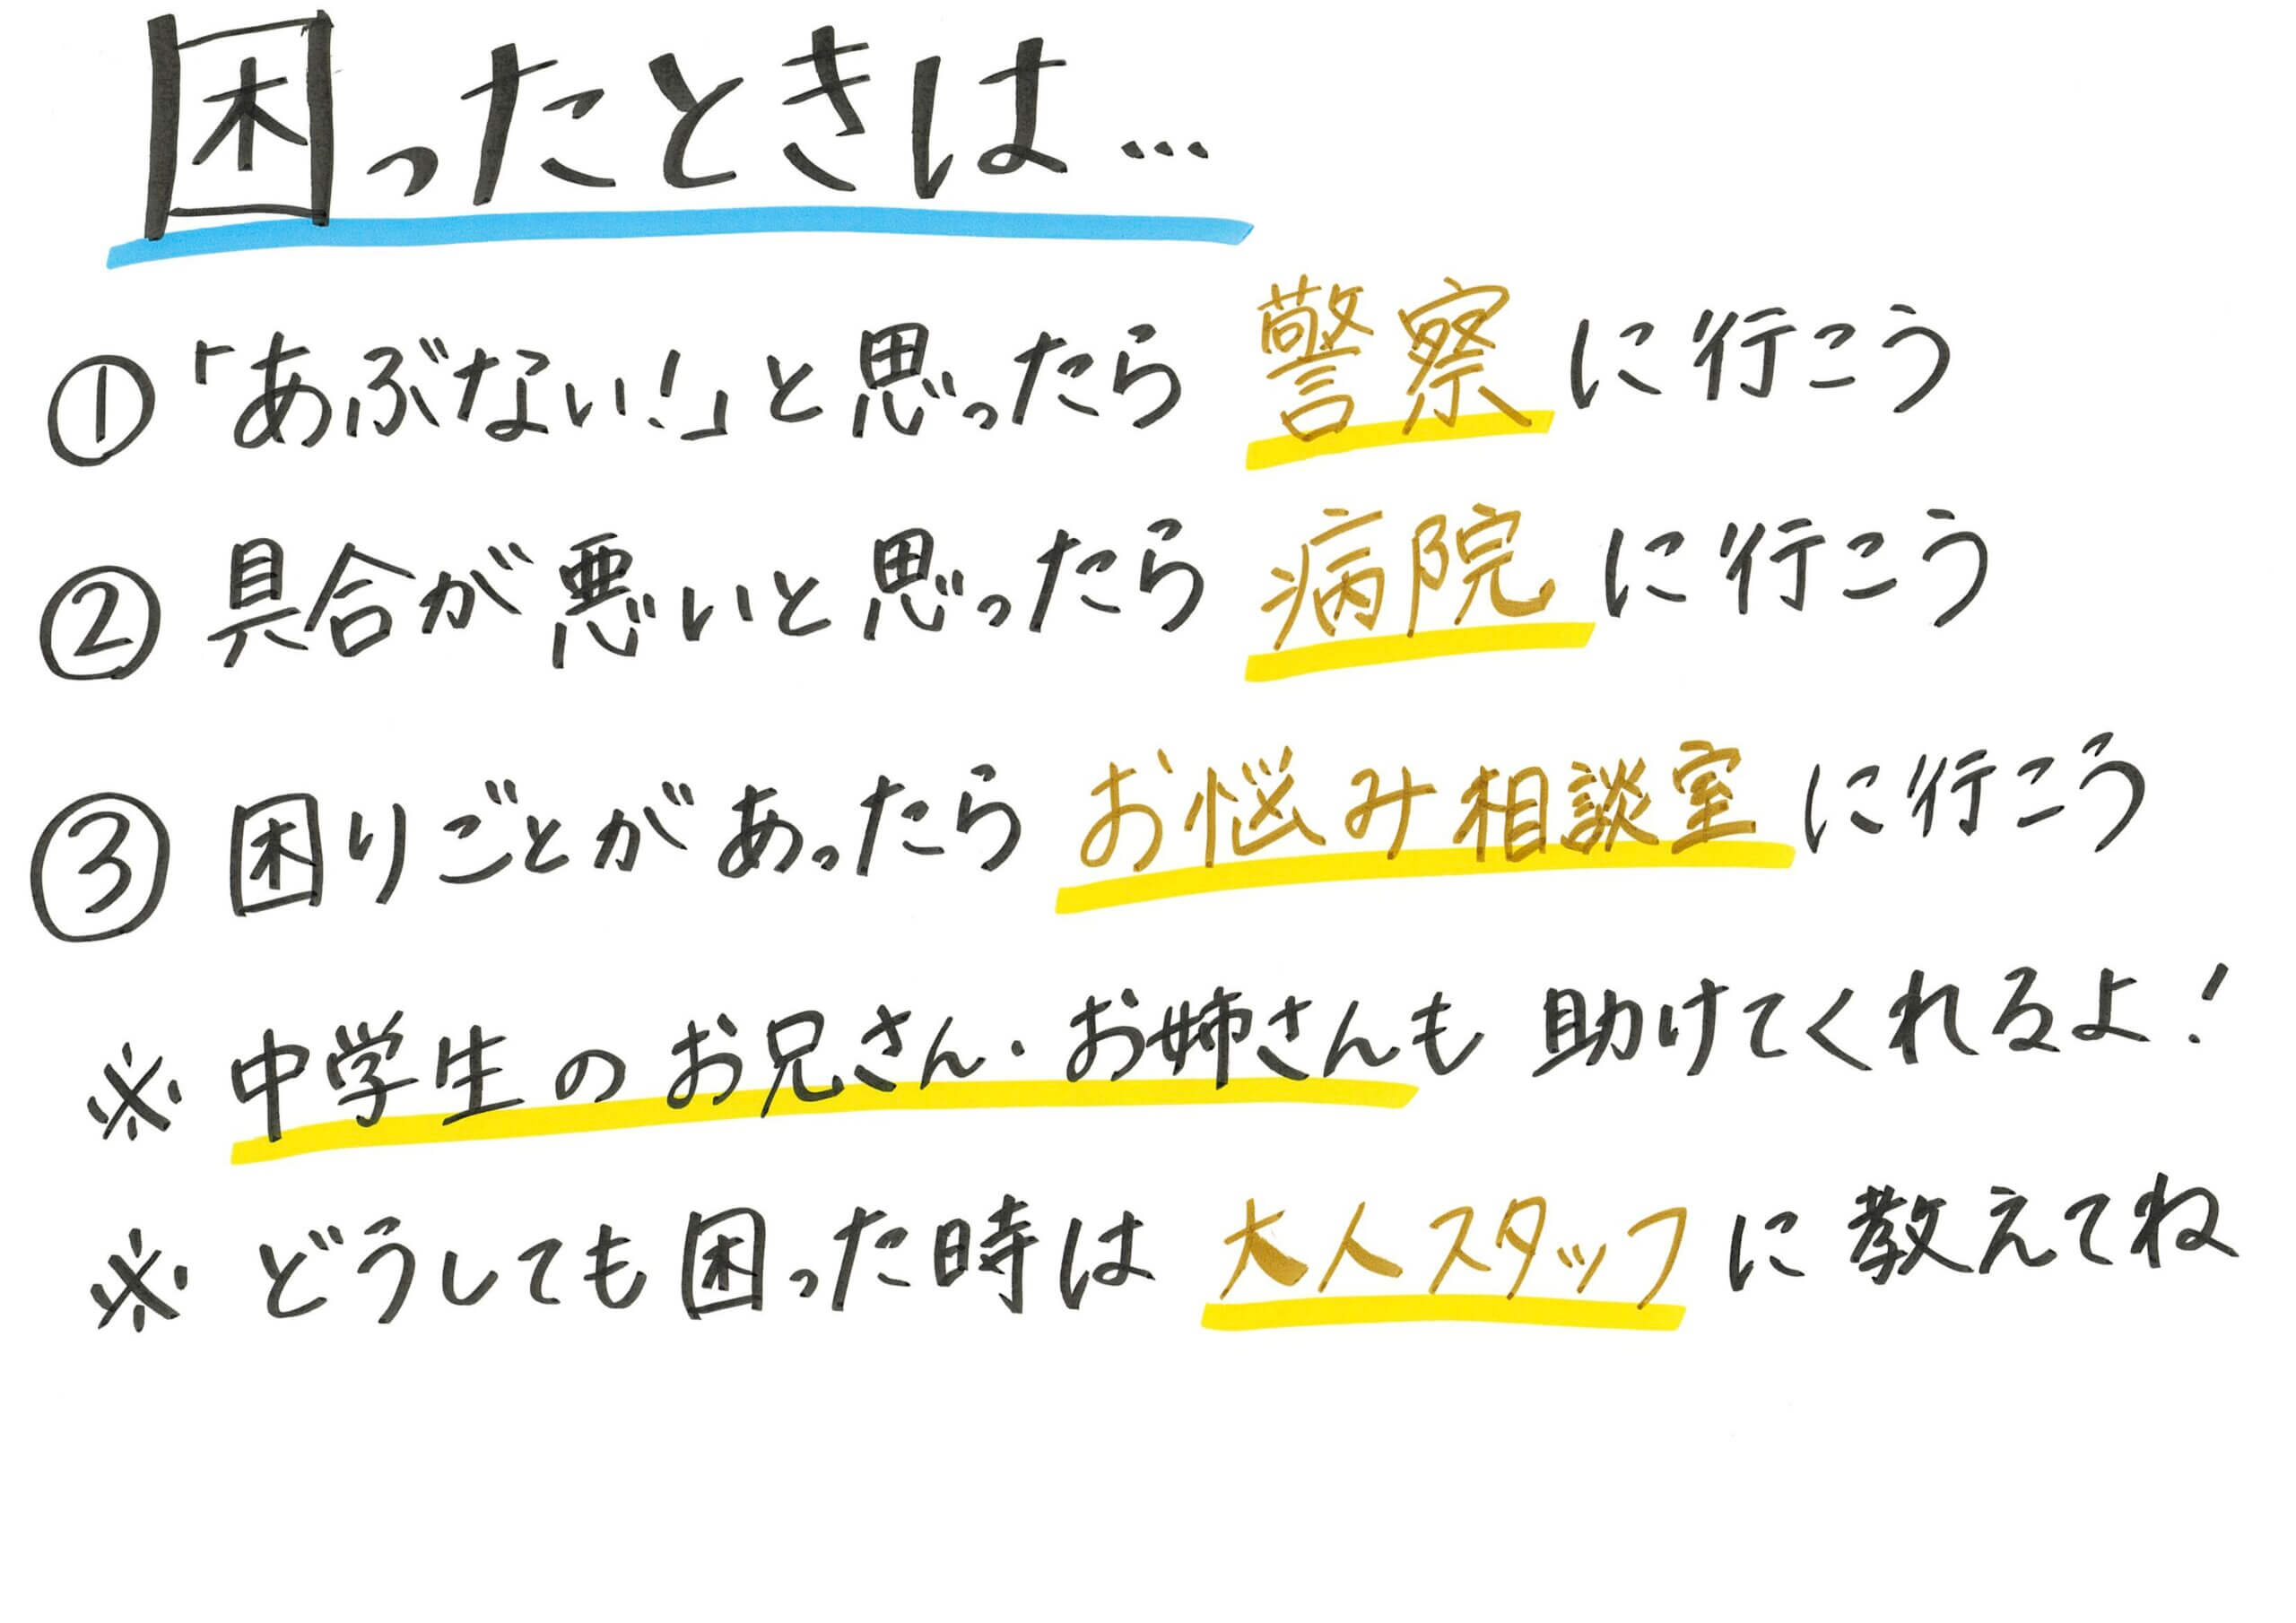 困ったときは…
①「あぶない!」と思ったら 警察に行こう
②具合が悪いと思ったら 病院に行こう
③困りごとがあったら お悩み相談室に行こう
※中学生のお兄さん・お姉さんも 助けてくれるよ!
※どうしても困った時は 大人スタッフに教えてね